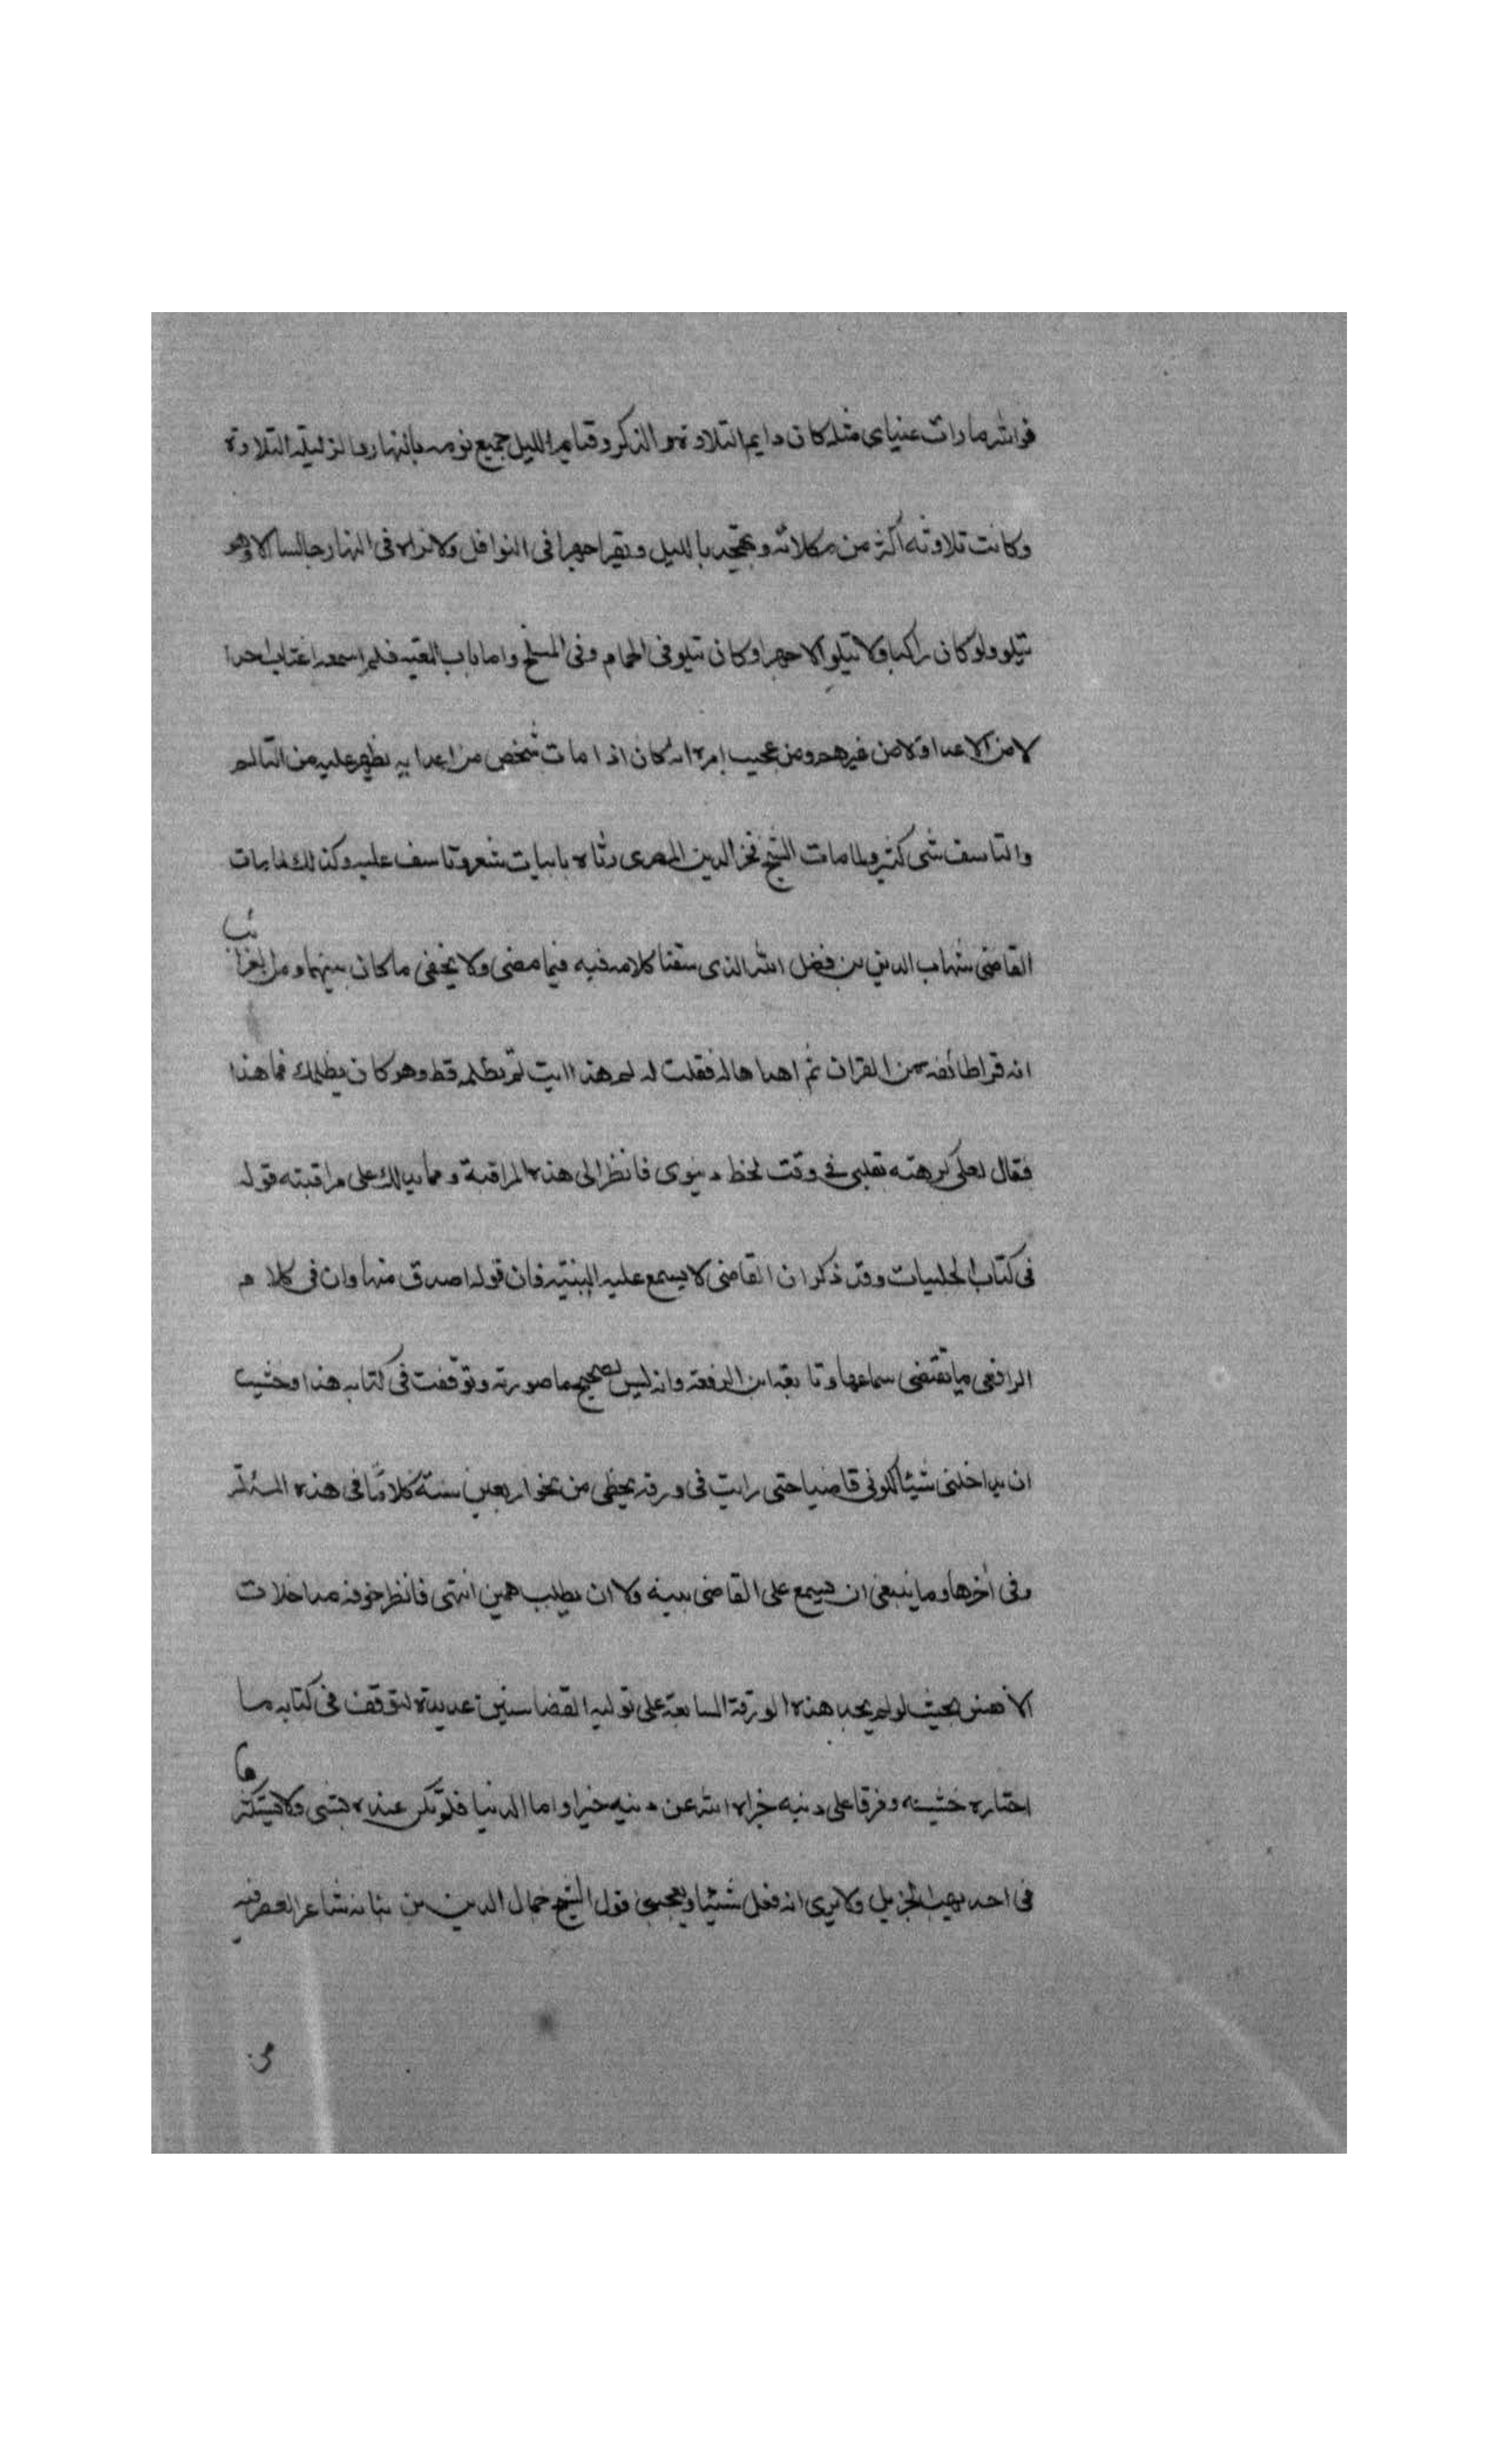 فوالله ما رات عيناي مثله كان دايم التلاوة والذكر وقيام الليل جميع نومه بالنهار وما لز ليله التلاوة
وكانت تلاوته اكثر من صلاته ويتهجد بالليل ويقرا جهرا في النوافل ولا تراه في النهار جالسا الا وهو
يتلو ولو كان راكبا ولا يتلو الا جهرا وكان يتلو في الحمام وفي المسلخ واما باب الغيبه فلم اسمعه اغتاب احدا
لا من الاعدا ولا من غيرهم ومن عجيب امره انه كان اذا مات شخص من اعدايه يظهر عليه من التالم
والتاسف شى كثير ولما مات الشيخ فخر الدين المصرى رثاه بابيات شعر وتاسف عليه وكذلك لما مات
القاضى شهاب الدين بن فضل الله الذى سقنا كلامه فيه فيما مضى ولا يخفى ما كان بينهما ومن الغرائب
انه قرا طائفة من القران ثم اهداها له فقلت له لم هذا انت لم تظلمه قط وهو كان يظلمك فما هذا
فقال لعلى كرهته بقلبى فى وقت لحظ دنيوى فانظر الى هذه المراقبة ومما يدلك على مراقبته قوله
فى كتاب الحلبيات وقد ذكر ان القاضى لا يسمع عليه البينة فان قوله اصدق منها وان فى كلام
الرافعى ما يقتضى سماعها وتابعه ابن الرفعة وانه ليس بصحيح ما صورته وتوقفت فى كتابه هذا وخشيت
ان يداخلنى شيئا لكونى قاضيا حتى رايت فى ورقة بخطى من نحو اربعين سنة كلاما فى هذه المسئلة
وفى اخرها وما ينبغى ان يسمع على القاضى بينة ولا ان يطلب يمين انتهى فانظر خوفه مداخلات
الانفس بحيث لو لم يجد هذه الورقة السابقة على توليه القضا سنين عديدة لتوقف فى كتابه ما
اختاره خشية وفرقا على دينه جزاه الله عن دينه خيرا واما الدنيا فلم تكن عنده بشى ولا يستكثرها
فى احد يهب الجزيل ولا يرى انه فعل شيئا ويعجبنى قول الشيخ جمال الدين بن نباته شاعر العصر فيه